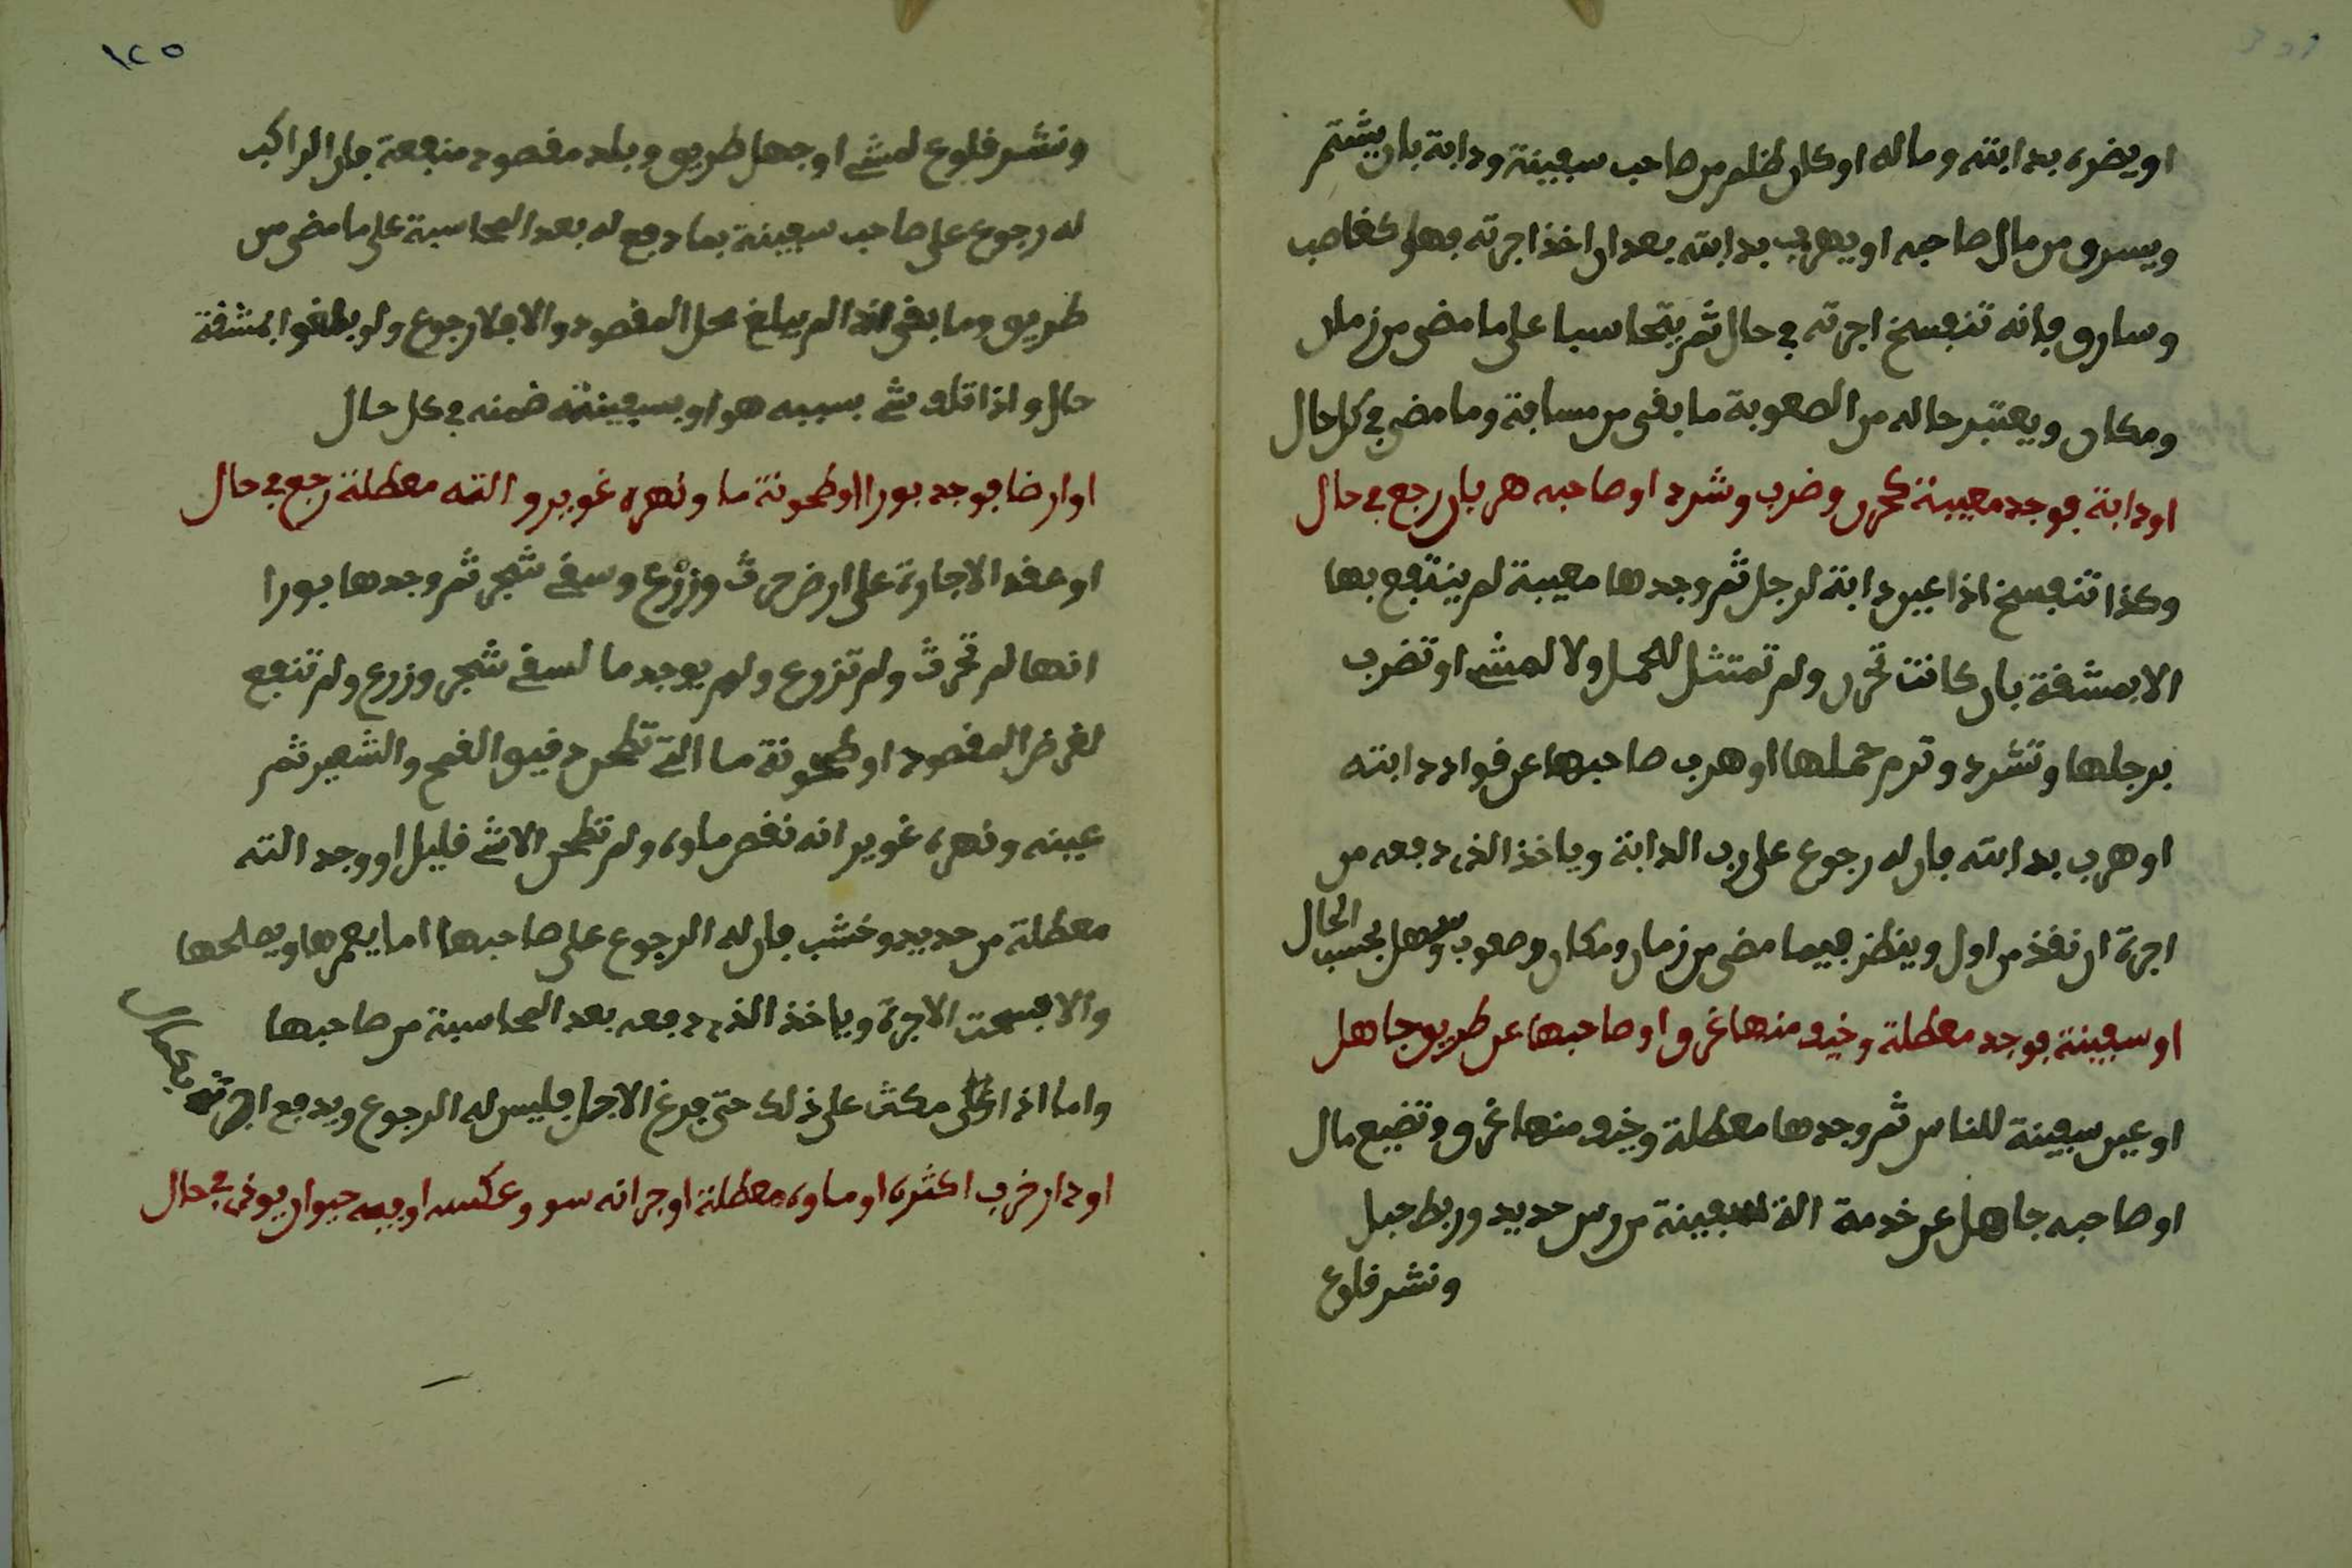 او يضره بدابته وماله او كان ظلم من صاحب سفينة ودابة بان يشتم
ويسرق من مال صاحبه او يهرب بدابته بعد ان اخذ اجرته فهو كغاصب
وسارق فانه تنفسخ اجرته في حال ثم يتحاسبا على ما مضى من زمان
ومكان ويعتبر حاله من الصعوبة ما بقى من مسافة وما مضى في كل حال
او دابة فوجد معيبة كحرن وضرب وشرد او صاحبه هربان رجع في حال
وكذا تنفسخ اذا عين دابة لرجل ثم وجدها معيبة لم ينتفع بها
الا بمشقة بان كانت تحرن ولم تمتثل للحمل ولا لمشي او تضرب
برجلها وتشرد وترم حملها او هرب صاحبها عن قواد دابته
او هرب بدابته فان له رجوع على رب الدابة وياخذ الذي دفعه من
اجرة ان نقذ من اول وينظر فيما مضى من زمان ومكان وصعوب وسهل بحسب الحال
او سفينة فوجد معطلة وخيف منها غرق او صاحبها عن طريق جاهل
او عين سفينة للناس ثم وجدها معطلة وخيف منها غرق وتضيع مال
او صاحبه جاهل عن خدمة الة لسفينة من رس حديد وربط حبل
ونشر قلوع
١٢٥
ونشر قلوع لمشي او جهل طريق وبلد مقصود منفعة فان الراكب
له رجوع على صاحب سفينة بما دفع له بعد المحاسبة على ما مضى من
طريق وما بقى اذا لم يبلغ محل المقصود والا فلا رجوع ولو بلغوا بمشقة
حال واذا تلف شي بسببه هو او بسفينته ضمنه في كل حال
او ارضا فوجد بورا او طحونة ما ونهره غوير والته معطلة رجع في حال
او عقد الاجارة على ارض حرث وزرع وسقي شجر ثم وجدها بورا
انها لم تحرث ولم تزرع ولم يوجد ما لسقي شجر وزرع ولم تنفع
لغرض المقصود او طحونة ما التي تطحن دقيق القمح والشعير ثم
عينه ونهره غوير انه نقص ماوه ولم تطحن الا شي قليل او وجد الته
معطلة من حديد وخشب فان له الرجوع على صاحبها اما يعمرها ويصلحها
والا فسخت الاجرة وياخذ الذي دفعه بعد المحاسبة من صاحبها
واما اذا مكث على ذلك حتى فرغ الاجل فليس له الرجوع ويدفع اجرته
او دار خرب اكثره او ماوه معطلة او جرانه سو وعكسه او فيه حيوان يوذي في حال